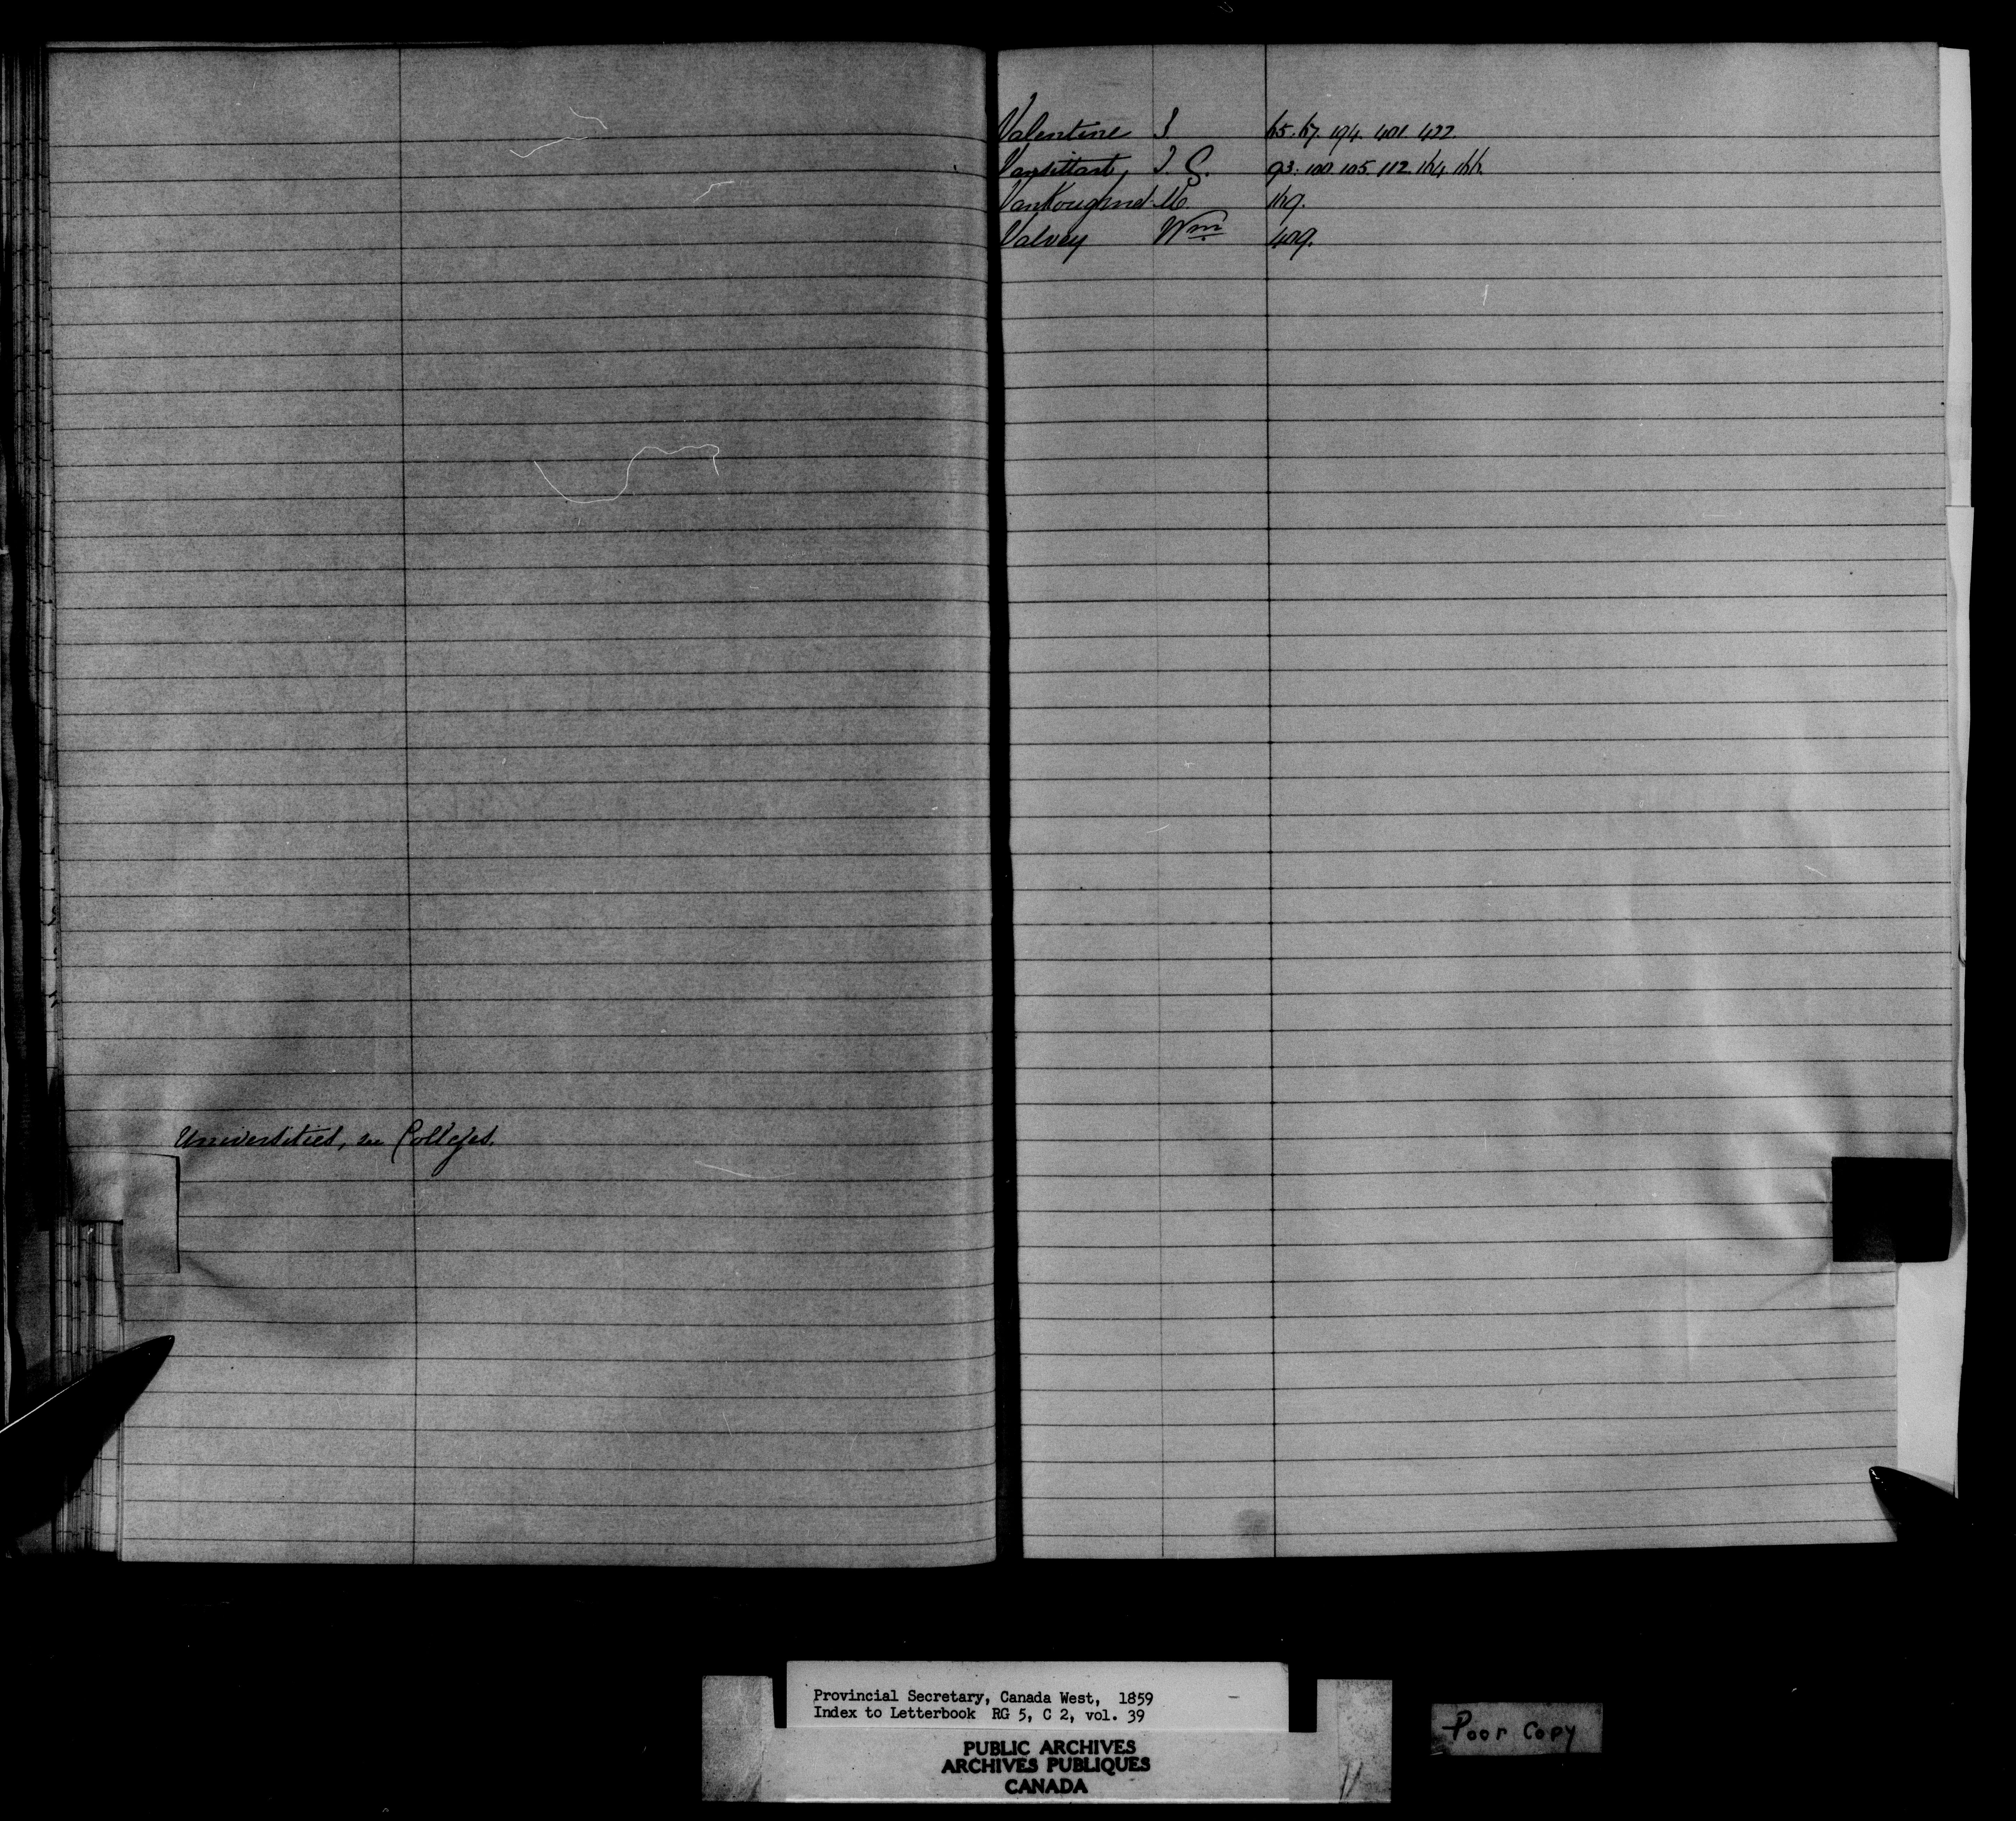 Universities, see Colleges.
Valentine J 65. 67. 194. 401. 422.
Vansittart, J. G. 93. 100. 105. 112. 164. 166.
VanKougnet M. 169.
Valvey Wm 409.
Provincial Secretary, Canada West, 1859
Index to Letterbook RG 5, C 2, vol. 39
PUBLIC ARCHIVES
ARCHIVES PUBLIQUES
CANADA
Poor Copy